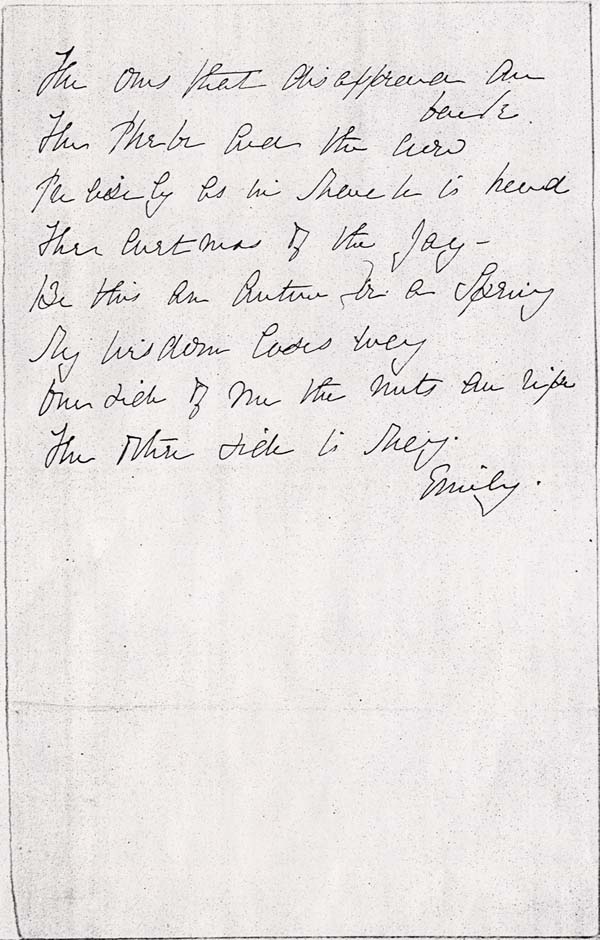 The ones that disappeared are
back.
The Phebe and the Crow
Precisely as in March is heard
The curtness of the Jay -
Be this an Autumn or a Spring
My wisdom loses way
One side of me the nuts are ripe
The other side is May.
Emily.